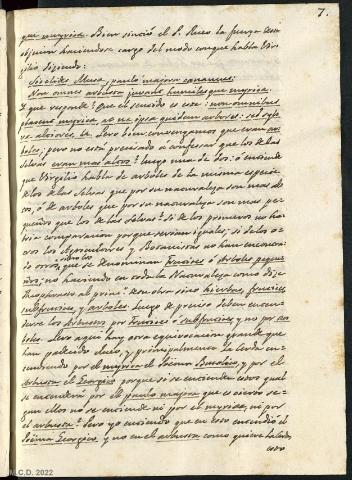 7.
que myrica. Bien sintió el P. Rueo la fuerza esta
objecion haciendose cargo del modo conque habla Vir-
gilio diziendo:
Sicelides Musæ, paulo majora canamus:
Non omnes arbusta juvant, humilesque myricæ.
Y que responde? Que el sentido es este: non omnibus
placent myricæ, at ne ipsa quidem arbores: sed sylvæ
altiores, &. Pero bien: convengamos que eran ar-
boles; pero no está precisado a confesar que los de las
selvas eran mas altos? luego una de dos: o entiende
que Virgilio habla de arboles de la misma especie
de los de las selvas que por su naturaleza son mas al-
tos, o de arboles que por su naturaleza son mas pe-
queños que los de las selvas? Si de los primeros no ha-
bria comparacion porque serian iguales; si de los o-
tros los Agricultores y Botanicos no han encontra-
do otros que se denominan Frutices o Arboles peque-
ños; no haciendo en toda la Naturaleza como dize
Theophrasto al princ. de su obra sino hierbas, frutices,
subfrutices, y arboles. Luego es preciso deban enten-
derse los Arbustos por Frutices o subfrutices, y no por ar-
boles. Pero aqui hay otra equivocacion grande que
han padecido Rueo, y principalmente la Cerda en-
tendiendo por el myrica el Poema Bucolico, y por el
arbusta el Georgico porque si se entienden estos qual
se entenderá por el paulo majora que es cierto se-
gun ellos no se entiende ni por el myrica, ni por
el arbusta? Pero yo entiendo que en esto entendió el
Poema Georgico, y no en el arbusta como quiere la Cerda,
esto
M.C.D. 2022